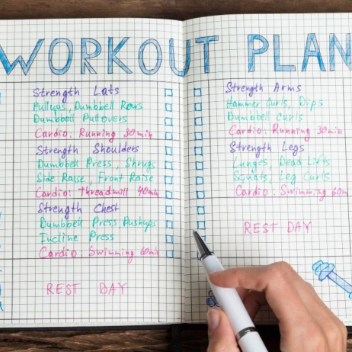 WORKOUT PLAN
Strength Lats
Pullups, Dumbbell Rows
Dumbbell Pullovers
Cardio: Running 30min
Strength Shoulders
Dumbbell Press, Shrug
Side Raise, Front Raise
Cardio: Threadmill 40min
Strength Chest
Dumbbell Press Pushups
Incline Press
Cardio Swimming 60min
REST DAY
Strength Arms
Hammer Curls, Dips
Dumbbell Curls
Cardio: Running 30min
Strength Legs
Lunges, Dead Lifts
Squats, Leg Curls
Cardio: Swimming 60m
REST DAY